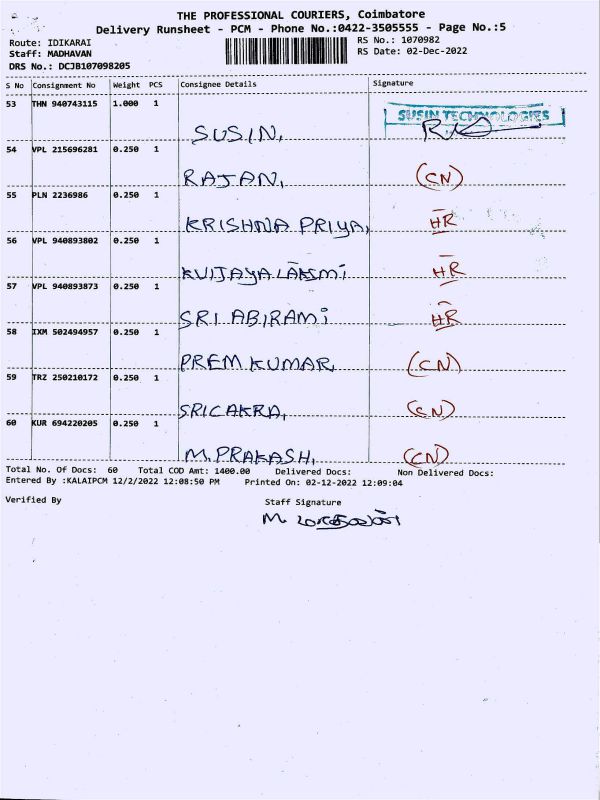 THE PROFESSIONAL COURIERS, Coimbatore
Delivery Runsheet - PCM - Phone No.:0422-3505555 - Page No.:5
Route: IDIKARAI
RS No.: 1070982
Staff: MADHAVAN
RS Date: 02-Dec-2022
DRS No.: DCJB107098205
S No Consignment No Weight PCS Consignee Details Signature
53 THN 940743115 1.000 1
SUSIN TECHNOLOGIES
SUSIN,
54 VPL 215696281 0.250 1
RAJAN, (CN)
55 PLN 2236986 0.250 1
KRISHNA PRIYA, HR
56 VPL 940893802 0.250 1
KVIJAYALAKSMI HR
57 VPL 940893873 0.250 1
SRI ABIRAMI HR
58 IXM 502494957 0.250 1
PREM KUMAR, (CN)
59 TRZ 250210172 0.250 1
SRICAKRA, (CN)
60 KUR 694220205 0.250 1
M.PRAKASH, (CN)
Total No. Of Docs: 60 Total COD Amt: 1400.00 Delivered Docs: Non Delivered Docs:
Entered By :KALAIPCM 12/2/2022 12:08:50 PM Printed On: 02-12-2022 12:09:04
Verified By Staff Signature